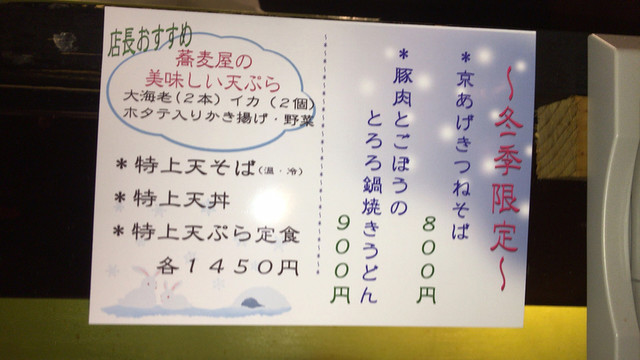 ～冬季限定～
＊京あげきつねそば
８００円
＊豚肉とごぼうの
とろろ鍋焼きうどん
９００円
店長おすすめ
蕎麦屋の
美味しい天ぷら
大海老(２本) イカ (２個)
ホタテ入りかき揚げ・野菜
＊特上天そば(温・冷)
＊特上天丼
＊特上天ぷら定食
各１４５０円